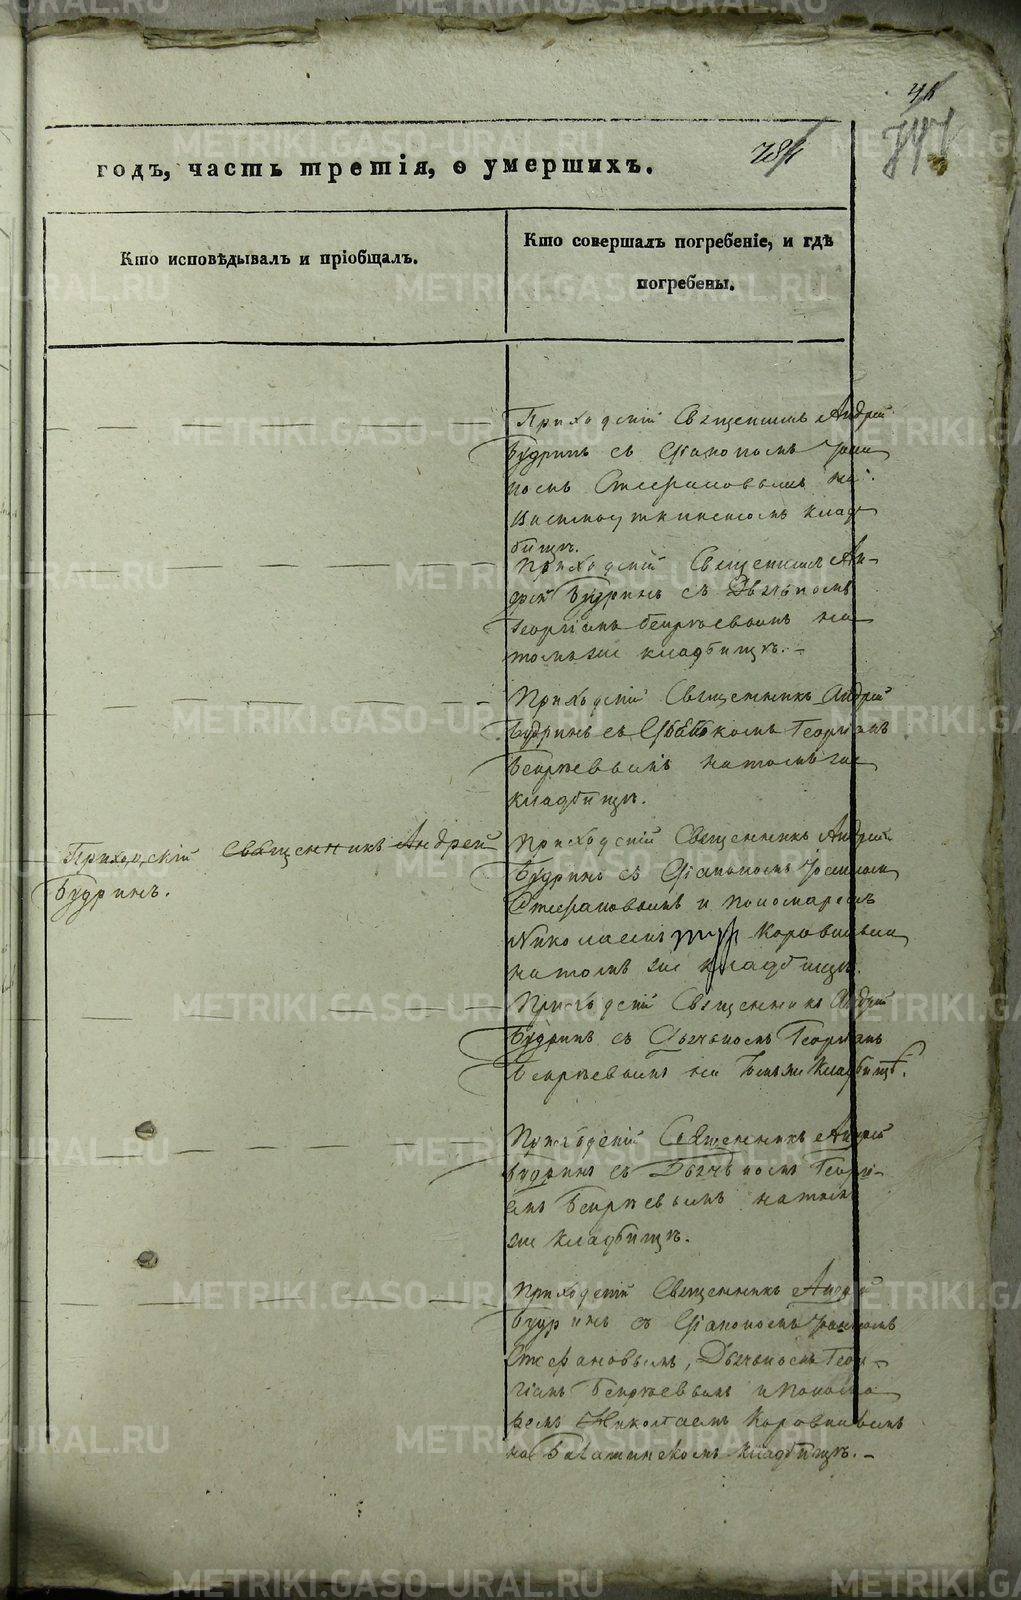 годъ, часть третія, о умершихъ.
Кто исповѣдывалъ и пріобщалъ.
Кто совершалъ погребеніе, и гдѣ
погребены.
Приходскій Священникъ Андрей
Будринъ съ Діакономъ Іоан
номъ Стефановымъ на
клад
бищѣ.
Приходскій Священникъ Ан-
дрей Будринъ съ Дьячькомъ
Георгіемъ на
томъ же кладбищѣ.-
Приходскій Священникъ Андрей
Будринъ съ Георгіемъ
на томъ же
кладбищѣ.
Приходскій Священникъ Андрей
Будринъ.
Приходскій Священникъ Андрей
Будринъ съ Діакономъ Іоанномъ
Стефановымъ и пономаремъ
Николаемъ
на томъ же кладбищѣ.
Приходскій Священникъ Андрей
Будринъ съ Дьячькомъ Георгіемъ
на томъ же кладбищѣ.
Приходскій Священникъ Андрей
Будринъ съ Дьячькомъ Георгі-
емъ на томъ
же кладбищѣ.
Приходскій Священникъ Андрей
Будринъ съ Діакономъ Іоанномъ
Стефановымъ, Дьячькомъ Геор-
гіемъ и понома
ремъ Николаемъ
на кладбищѣ.-
METRIKI.GASO-URAL.RU